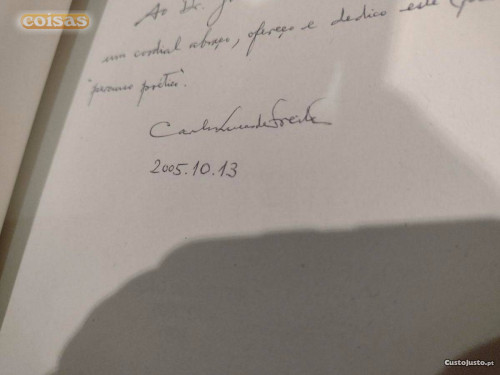 coisas
Ao Dr.
um cordial abraço, ofereço e dedico este
"percurso poético".
Carlos de Freitas
2005.10.13
CustoJusto.pt